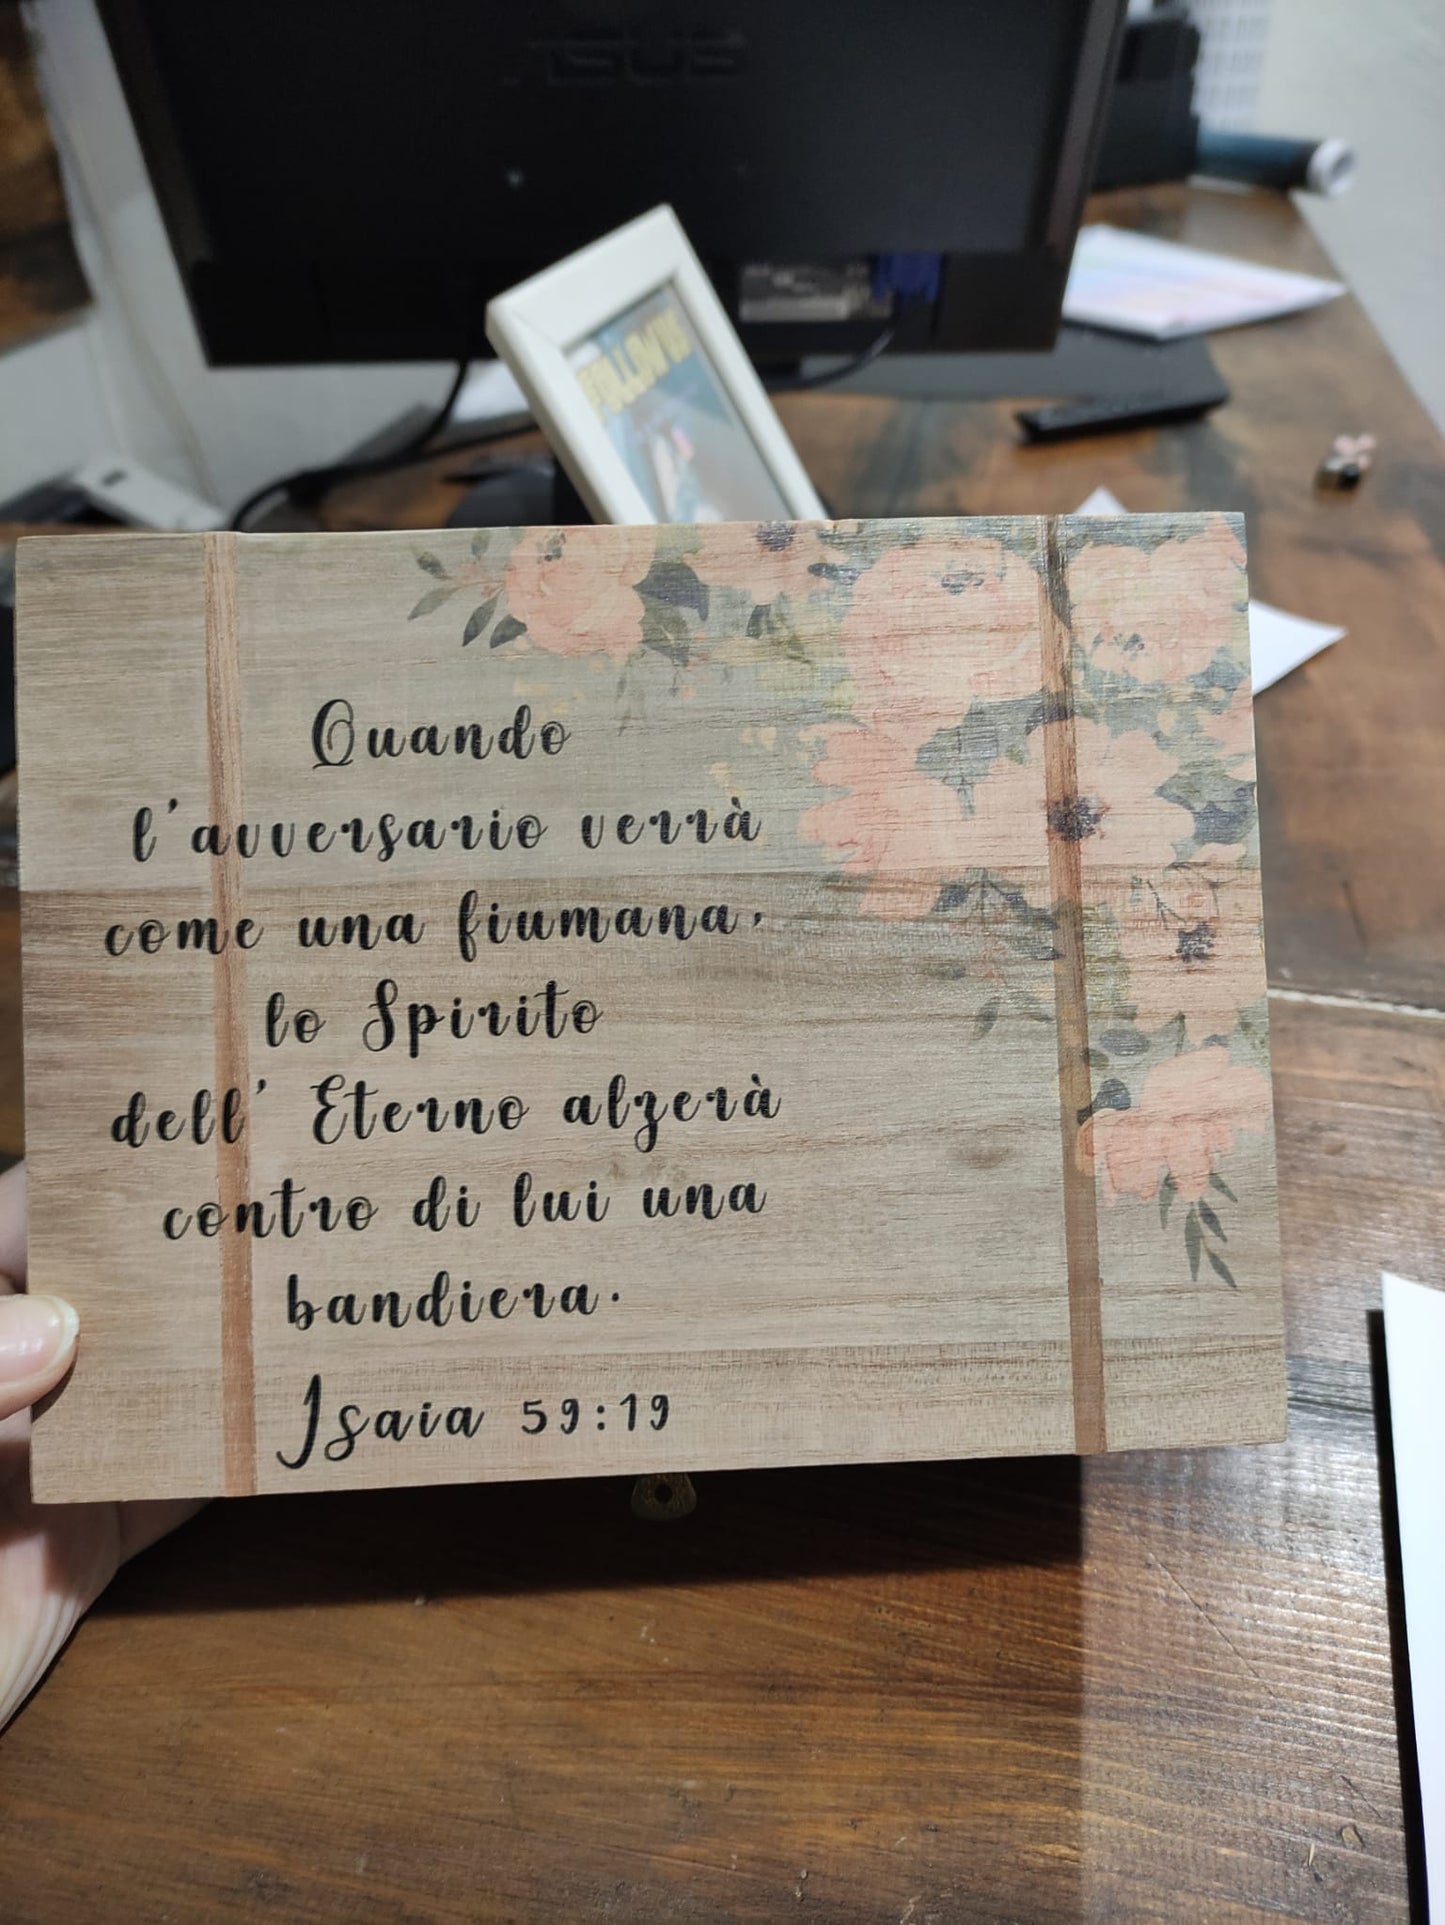 ASUS
FOLLOW
Quando
l'avversario verrà
come una fiumana,
lo Spirito
dell' Eterno alzerà
contro di lui una
bandiera.
Isaia 59:19